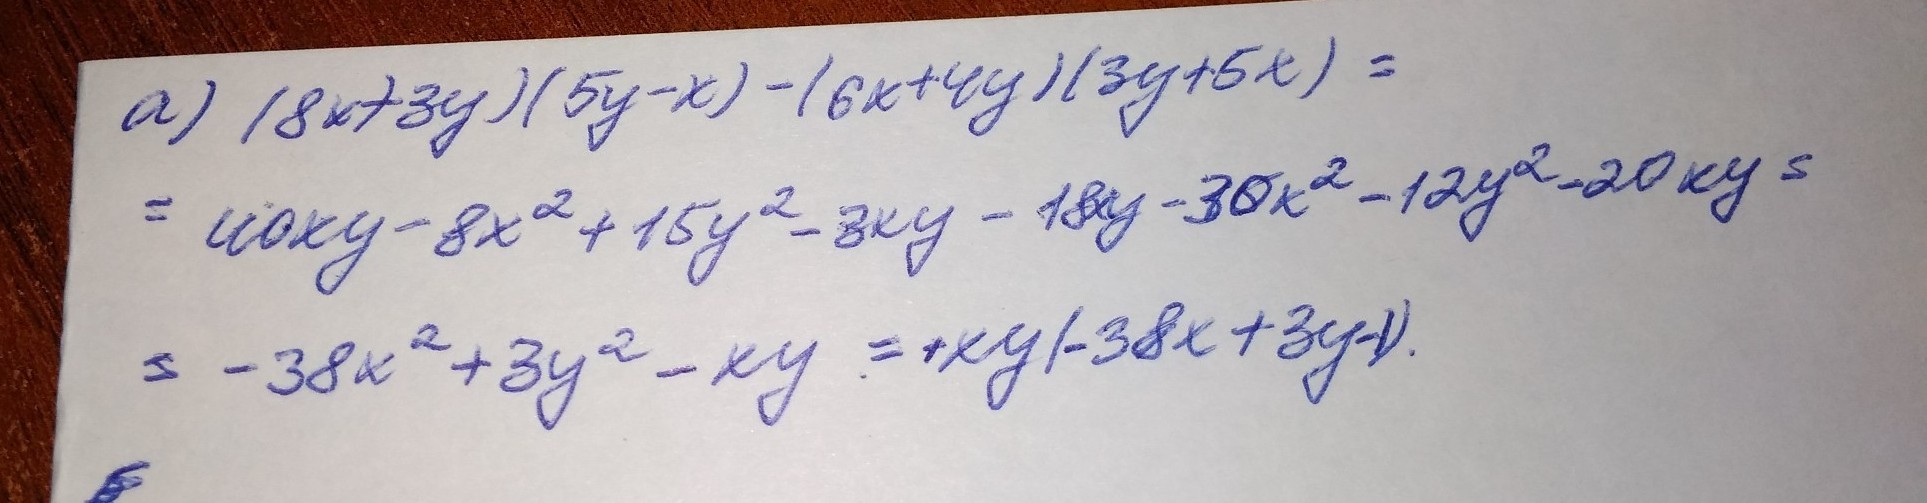 а) (8x+3y)(5y-x)-(6x+4y)(3y+5x)=
= 40xy-8x²+15y²-3xy-18xy-30x²-12y²-20xy=
= -38x²+3y²-xy = +xy(-38x+3y-1).